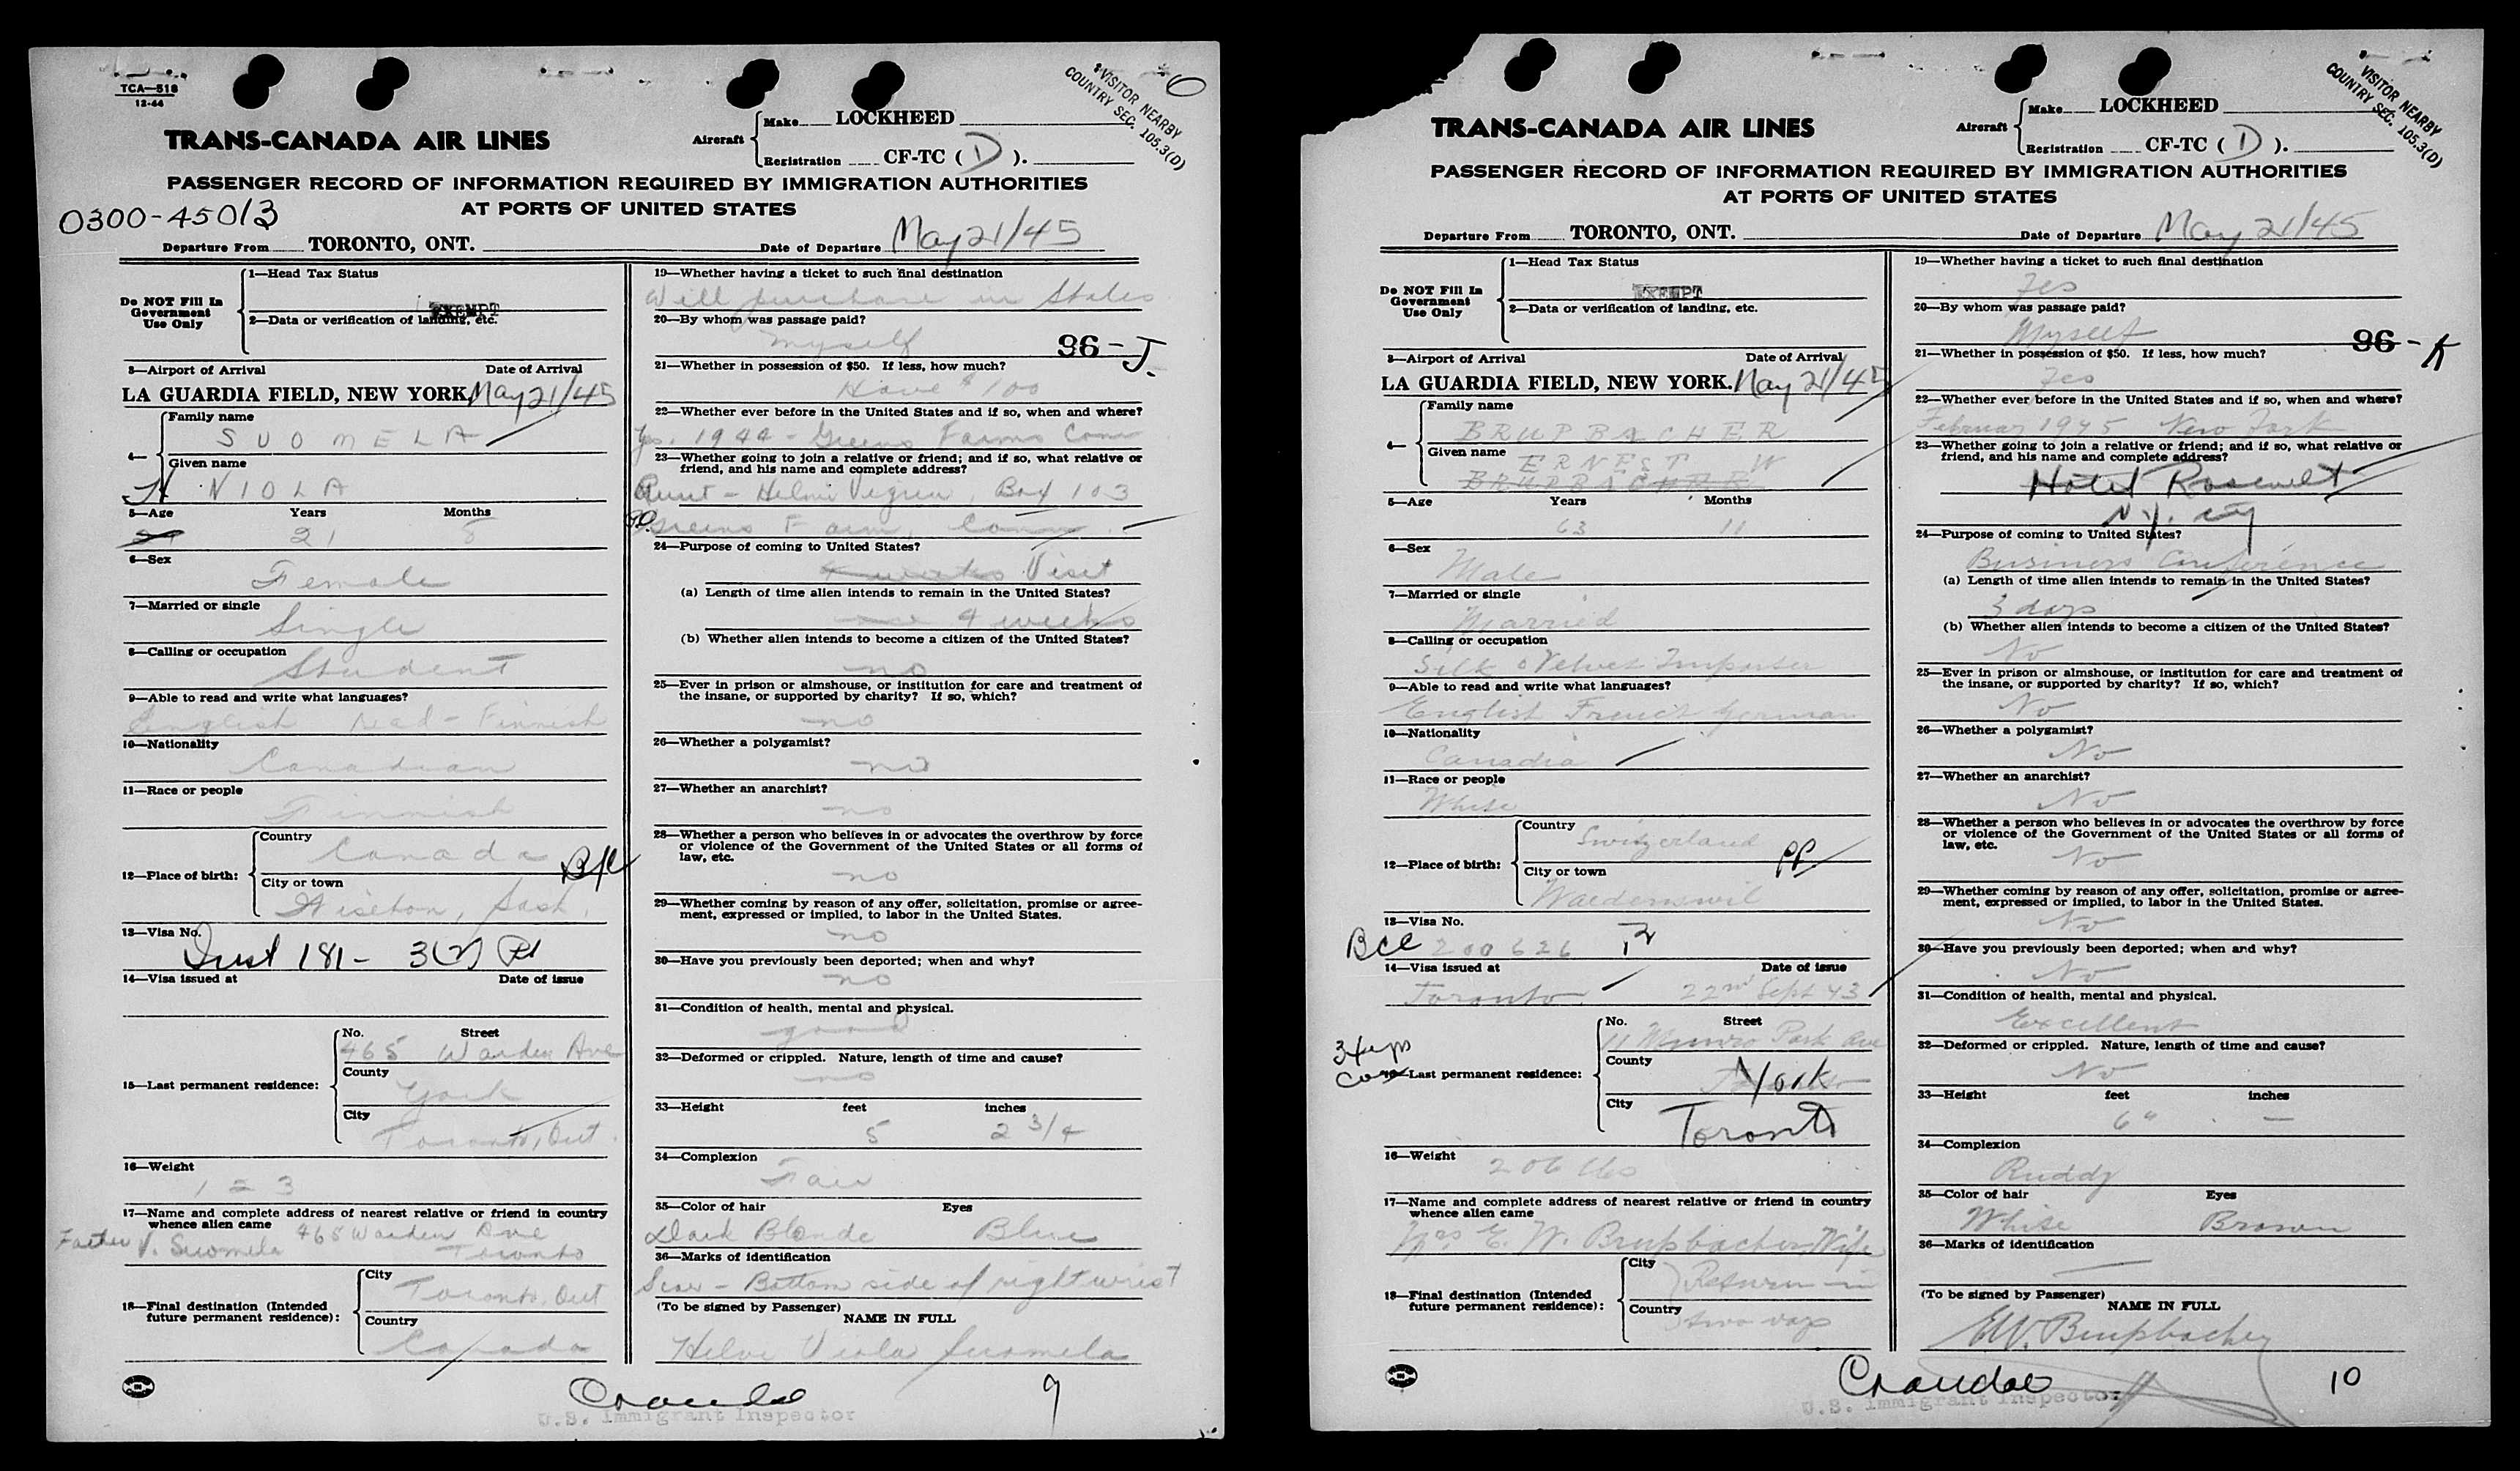 TCA—518
12-44
TRANS-CANADA AIR LINES
Aircraft
Make LOCKHEED
Registration CF-TC ( D ).
VISITOR NEARBY
COUNTRY SEC. 105.3(D)
PASSENGER RECORD OF INFORMATION REQUIRED BY IMMIGRATION AUTHORITIES
AT PORTS OF UNITED STATES
0300-45013
Departure From TORONTO, ONT. Date of Departure May 21/45
Do NOT Fill In
Government
Use Only
1—Head Tax Status
EXEMPT
2—Data or verification of landing, etc.
3—Airport of Arrival Date of Arrival
LA GUARDIA FIELD, NEW YORK. May 21/45
4—
Family name
SUOMELA
Given name
H VIOLA
5—Age Years Months
21 8
6—Sex
Female
7—Married or single
Single
8—Calling or occupation
Student
9—Able to read and write what languages?
English read - Finnish
10—Nationality
Canadian
11—Race or people
Finnish
12—Place of birth:
Country
Canada B/C
City or town
Wiseton, Sask.
13—Visa No.
Inst 181- 3(2)
14—Visa issued at Date of issue
15—Last permanent residence:
No. Street
465 Warden Ave
County
York
City
Toronto, Ont.
16—Weight
17—Name and complete address of nearest relative or friend in country
whence alien came
Father V. Suomela 465 Warden Ave
Toronto
18—Final destination (Intended
future permanent residence):
City
Toronto, Ont
Country
Canada
19—Whether having a ticket to such final destination
Will purchase in States
20—By whom was passage paid?
myself
96-J.
21—Whether in possession of $50. If less, how much?
Have $100
22—Whether ever before in the United States and if so, when and where?
Yes. 1944 - Greens Farms Conn
23—Whether going to join a relative or friend; and if so, what relative or
friend, and his name and complete address?
Aunt - Box 103
Greens Farm, Conn.
24—Purpose of coming to United States?
Visit
(a) Length of time alien intends to remain in the United States?
4 weeks
(b) Whether alien intends to become a citizen of the United States?
no
25—Ever in prison or almshouse, or institution for care and treatment of
the insane, or supported by charity? If so, which?
no
26—Whether a polygamist?
no
27—Whether an anarchist?
no
28—Whether a person who believes in or advocates the overthrow by force
or violence of the Government of the United States or all forms of
law, etc.
no
29—Whether coming by reason of any offer, solicitation, promise or agree-
ment, expressed or implied, to labor in the United States.
no
30—Have you previously been deported; when and why?
no
31—Condition of health, mental and physical.
good
32—Deformed or crippled. Nature, length of time and cause?
no
33—Height feet inches
5 2 3/4
34—Complexion
Fair
35—Color of hair Eyes
Dark Blonde Blue
36—Marks of identification
Scar - Bottom side of right wrist
(To be signed by Passenger)
NAME IN FULL
Helvi Viola Suomela
9
U.S. Immigrant Inspector
TRANS-CANADA AIR LINES
Aircraft
Make LOCKHEED
Registration CF-TC ( D ).
VISITOR NEARBY
COUNTRY SEC. 105.3(D)
PASSENGER RECORD OF INFORMATION REQUIRED BY IMMIGRATION AUTHORITIES
AT PORTS OF UNITED STATES
Departure From TORONTO, ONT. Date of Departure May 21/45
Do NOT Fill In
Government
Use Only
1—Head Tax Status
EXEMPT
2—Data or verification of landing, etc.
3—Airport of Arrival Date of Arrival
LA GUARDIA FIELD, NEW YORK. May 21/45
4—
Family name
BRUPBACHER
Given name
ERNEST W
BRUPBACHER
5—Age Years Months
63 11
6—Sex
Male
7—Married or single
Married
8—Calling or occupation
Silk & Velvet Importer
9—Able to read and write what languages?
English French German
10—Nationality
Canadia
11—Race or people
White
12—Place of birth:
Country
Switzerland PP
City or town
Waedenswil
13—Visa No.
BCC 200626
14—Visa issued at Date of issue
Toronto 22nd Sept 43
15—Last permanent residence:
No. Street
11 Munro Park Ave
County
York
City
Toronto
16—Weight
206 lbs
17—Name and complete address of nearest relative or friend in country
whence alien came
Mrs E. W. Brupbacher, Wife
18—Final destination (Intended
future permanent residence):
City
Return in
Country
two days
19—Whether having a ticket to such final destination
Yes
20—By whom was passage paid?
Myself
96-K
21—Whether in possession of $50. If less, how much?
Yes
22—Whether ever before in the United States and if so, when and where?
Februar 1945 New York
23—Whether going to join a relative or friend; and if so, what relative or
friend, and his name and complete address?
Hotel Rosevelt
N.Y. City
24—Purpose of coming to United States?
Business Conference
(a) Length of time alien intends to remain in the United States?
3 days
(b) Whether alien intends to become a citizen of the United States?
No
25—Ever in prison or almshouse, or institution for care and treatment of
the insane, or supported by charity? If so, which?
No
26—Whether a polygamist?
No
27—Whether an anarchist?
No
28—Whether a person who believes in or advocates the overthrow by force
or violence of the Government of the United States or all forms of
law, etc.
No
29—Whether coming by reason of any offer, solicitation, promise or agree-
ment, expressed or implied, to labor in the United States.
No
30—Have you previously been deported; when and why?
No
31—Condition of health, mental and physical.
Excellent
32—Deformed or crippled. Nature, length of time and cause?
No
33—Height feet inches
6" —
34—Complexion
Ruddy
35—Color of hair Eyes
White Brown
36—Marks of identification
(To be signed by Passenger)
NAME IN FULL
E.W. Brupbacher
10
U.S. Immigrant Inspector